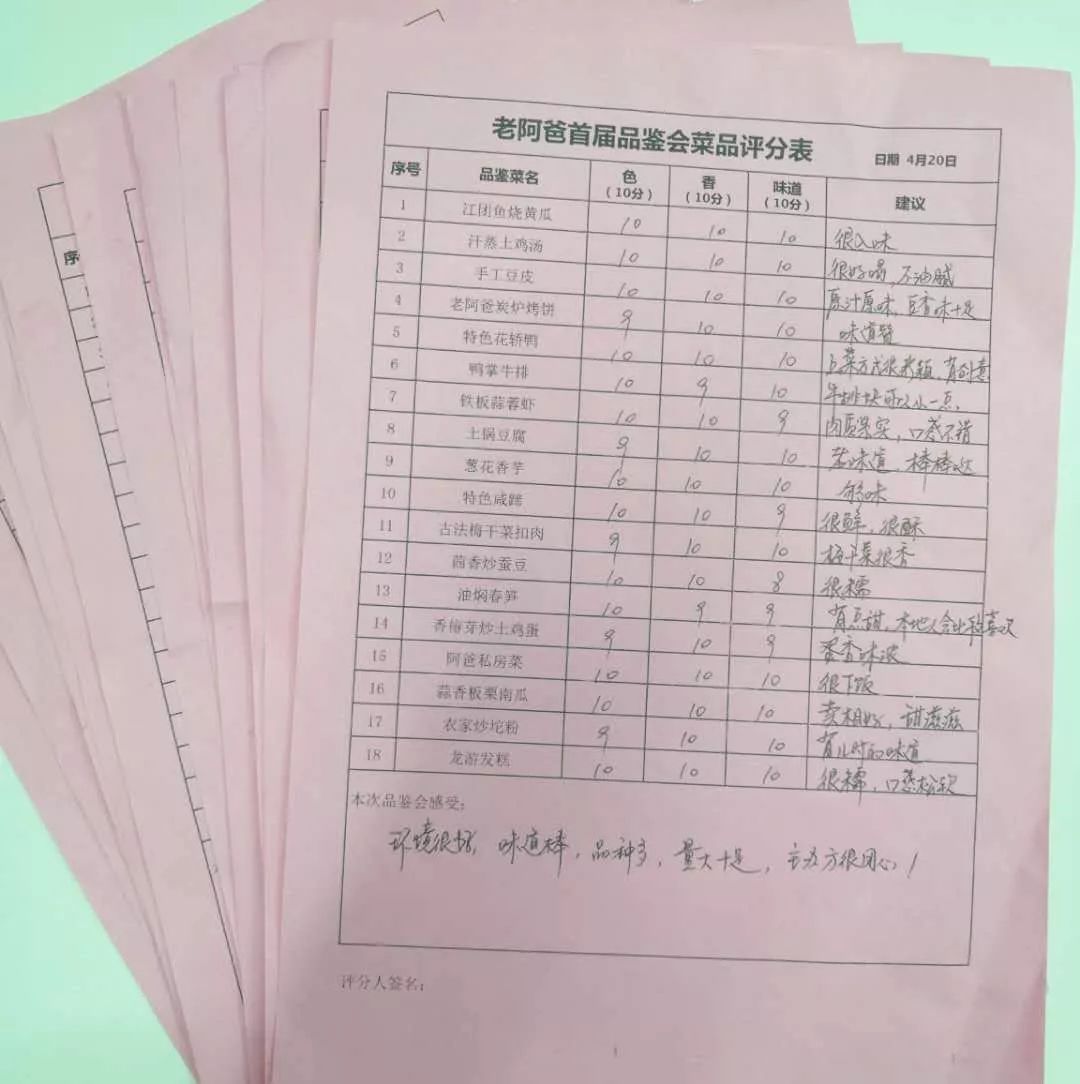 老阿爸首届品鉴会菜品评分表 日期 4月20日
序号 品鉴菜名 色（10分） 香（10分） 味道（10分） 建议
1 江团鱼烧黄瓜 10 10 10 很入味
2 汗蒸土鸡汤 10 10 10 很好喝，不油腻
3 手工豆皮 10 10 10 原汁原味，豆香味十足
4 老阿爸炭炉烤饼 9 10 10 味道赞
5 特色花轿鸭 10 10 10 上菜方式很新颖，有创意
6 鸭掌牛排 10 9 10 牛排块可以小一点，
7 铁板蒜蓉虾 10 10 9 肉质紧实，口感不错
8 土锅豆腐 9 10 10 老味道，棒棒哒
9 葱花香芋 10 10 10 够味
10 特色咸蹄 10 10 9 很鲜，很酥
11 古法梅干菜扣肉 9 10 10 梅干菜很香
12 茴香炒蚕豆 10 10 8 很糯
13 油焖春笋 10 9 9 有点甜，本地人会比较喜欢
14 香椿芽炒土鸡蛋 9 10 9 蛋香味浓
15 阿爸私房菜 10 10 10 很下饭
16 蒜香板栗南瓜 10 10 10 卖相好，甜滋滋
17 农家炒坨粉 9 10 10 有儿时的味道
18 龙游发糕 10 10 10 很糯，口感松软
本次品鉴会感受：
环境很好，味道棒，品种多，量大十足，主办方很用心！
评分人签名：
序